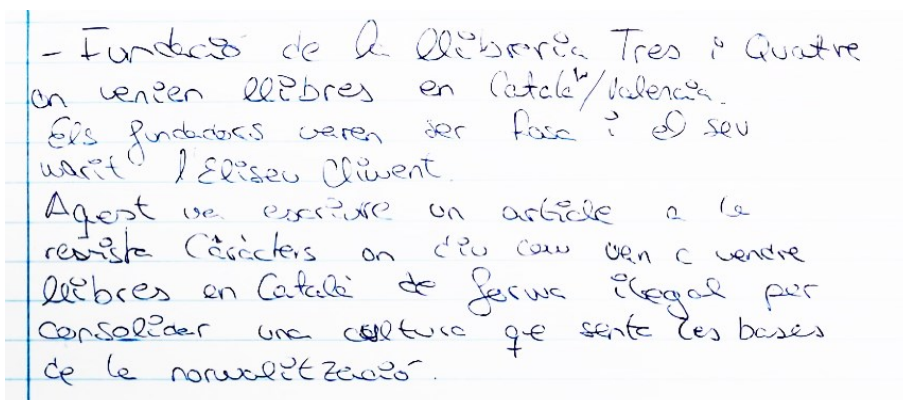 - Fundació de la llibreria Tres i Quatre
on venien llibres en Català/Valencià.
Els fundadors varen ser Rosa i el seu
marit l'Eliseu Climent.
Aqest va escriure un article a la
revista Caràcters on diu com van a vendre
llibres en Català de forma ilegal per
consolidar una cultura qe senta les bases
de la normalització.